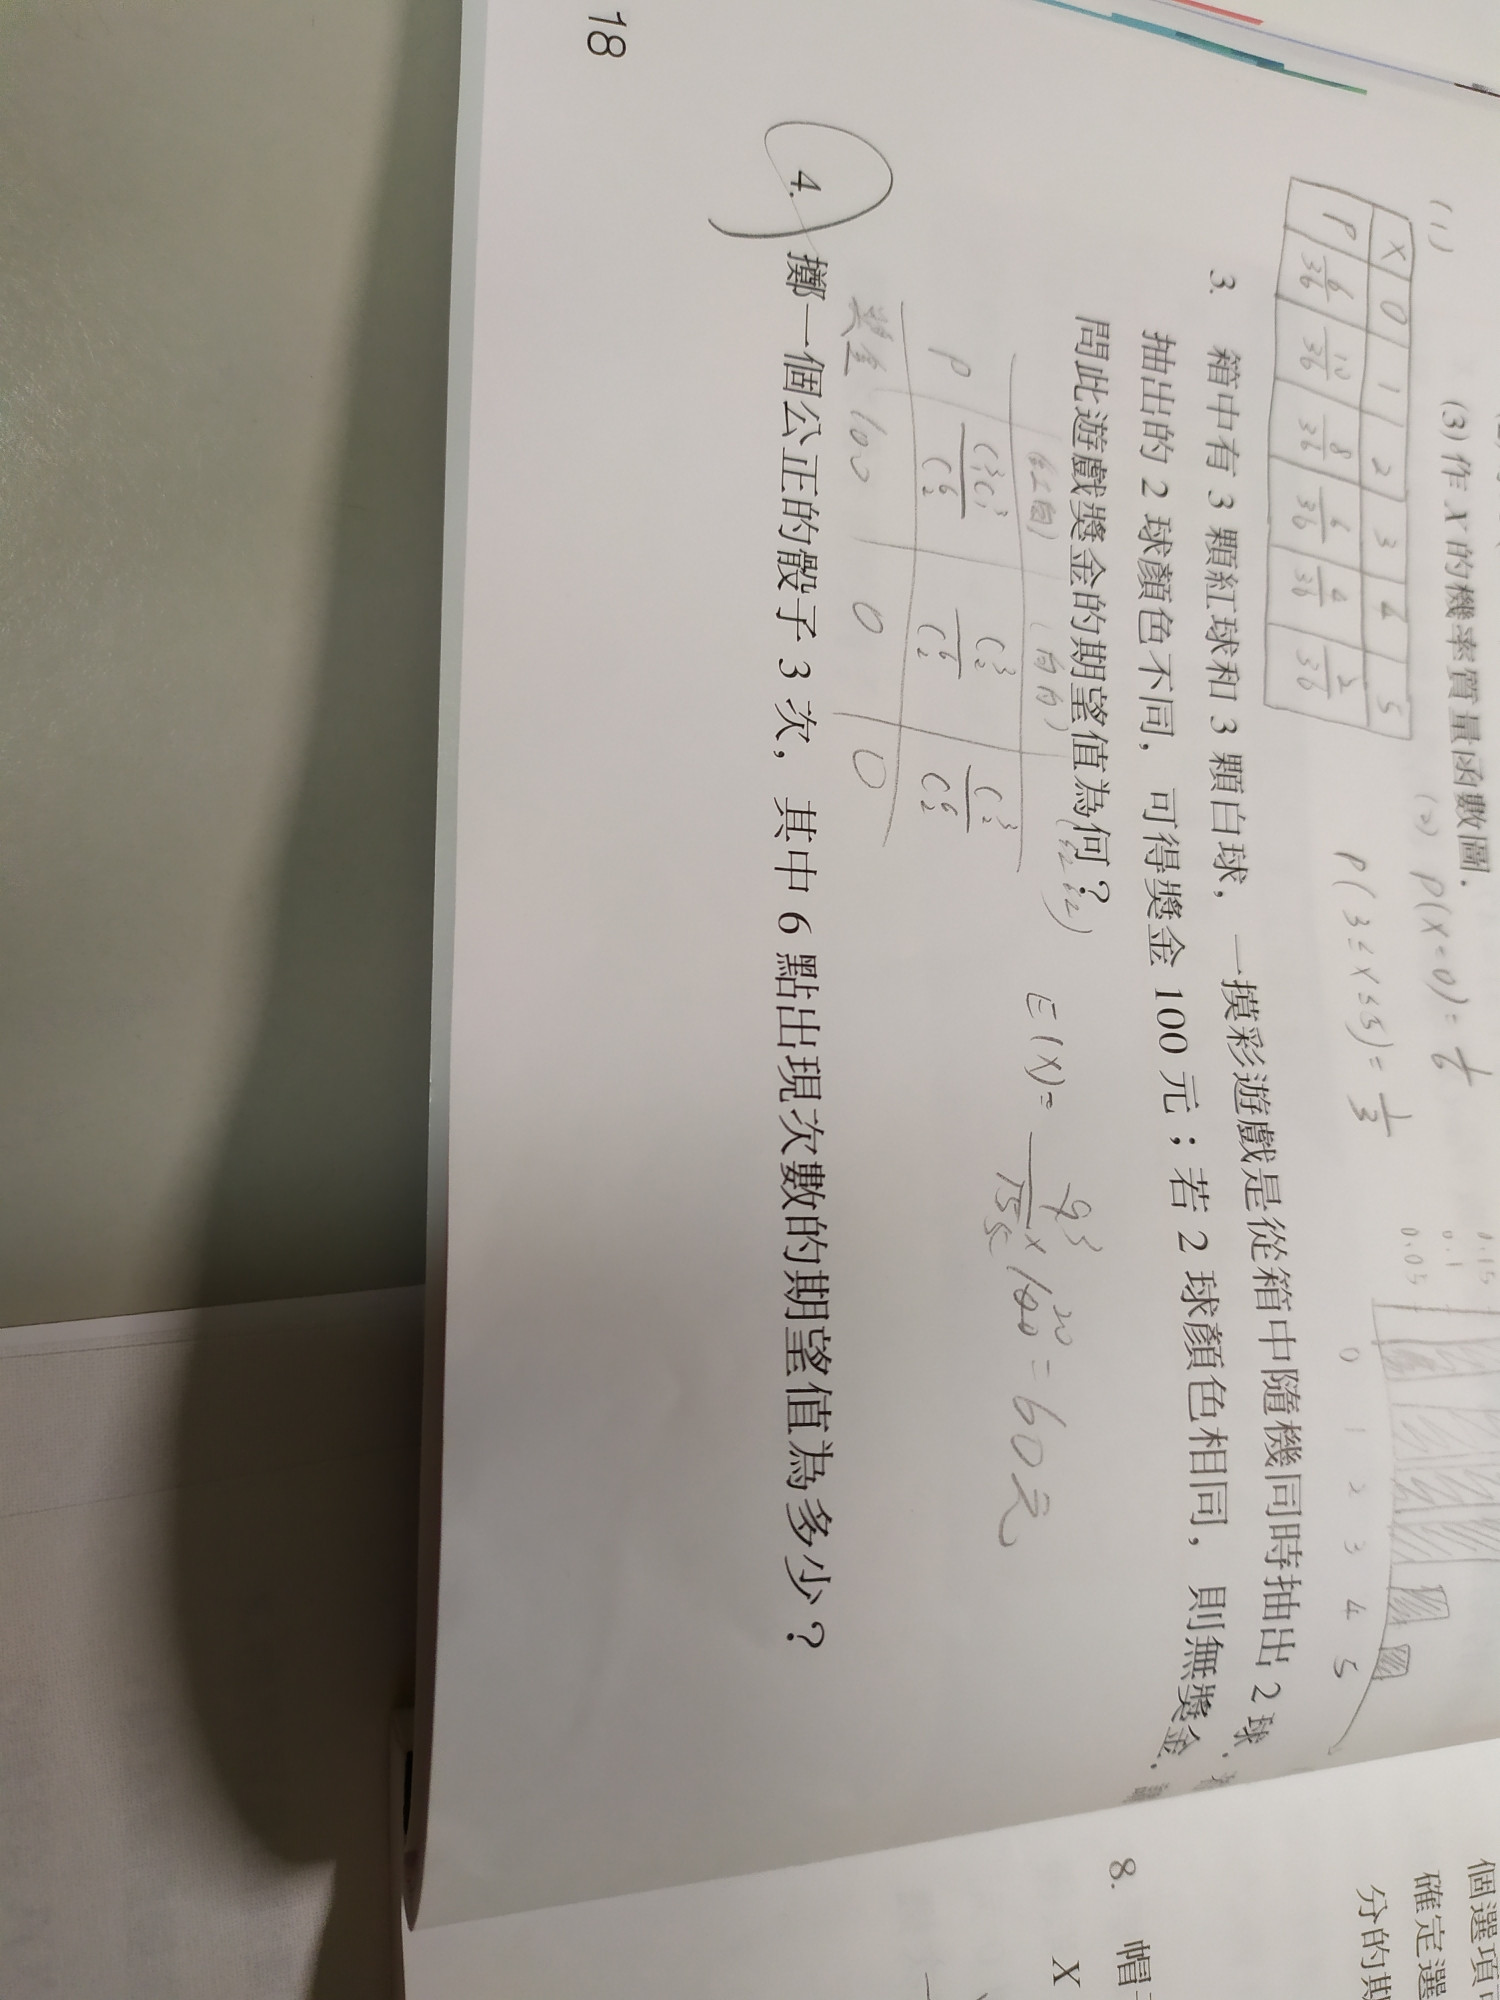 (3) 作 X 的機率質量函數圖.
(1)
X 0 1 2 3 4 5
P 6/36 10/36 8/36 6/36 4/36 2/36
(2) P(X=0)= 1/6
P(3≤X≤5)= 1/3
0.15
0.1
0.05
0 1 2 3 4 5
3. 箱中有 3 顆紅球和 3 顆白球,一摸彩遊戲是從箱中隨機同時抽出 2 球.
抽出的 2 球顏色不同,可得獎金 100 元;若 2 球顏色相同,則無獎金.
問此遊戲獎金的期望值為何?
(紅白) (白白) (紅紅)
P C³₁C³₁/C⁶₂ C³₂/C⁶₂ C³₂/C⁶₂
獎金 100 0 0
E(X)= 9³/15₅ × 100²⁰ = 60元
4. 擲一個公正的骰子 3 次,其中 6 點出現次數的期望值為多少?
18
個選項
確定選
分的期
8. 帽
X